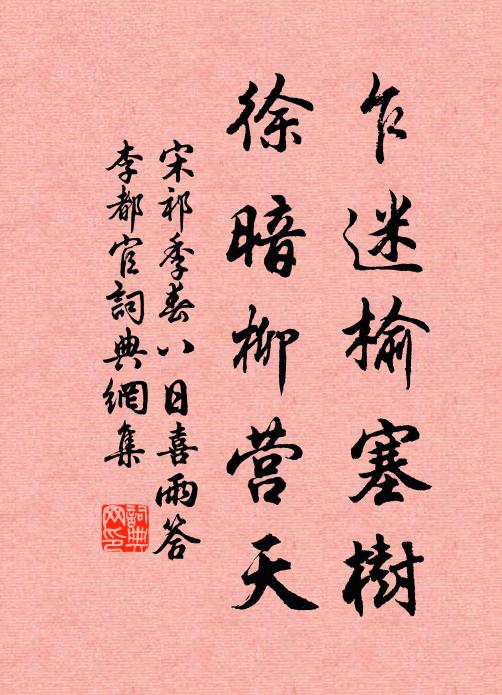 乍迷榆塞樹
徐暗柳营天
宋祁季春八日喜雨答
李都官詞典網集
詞典网印